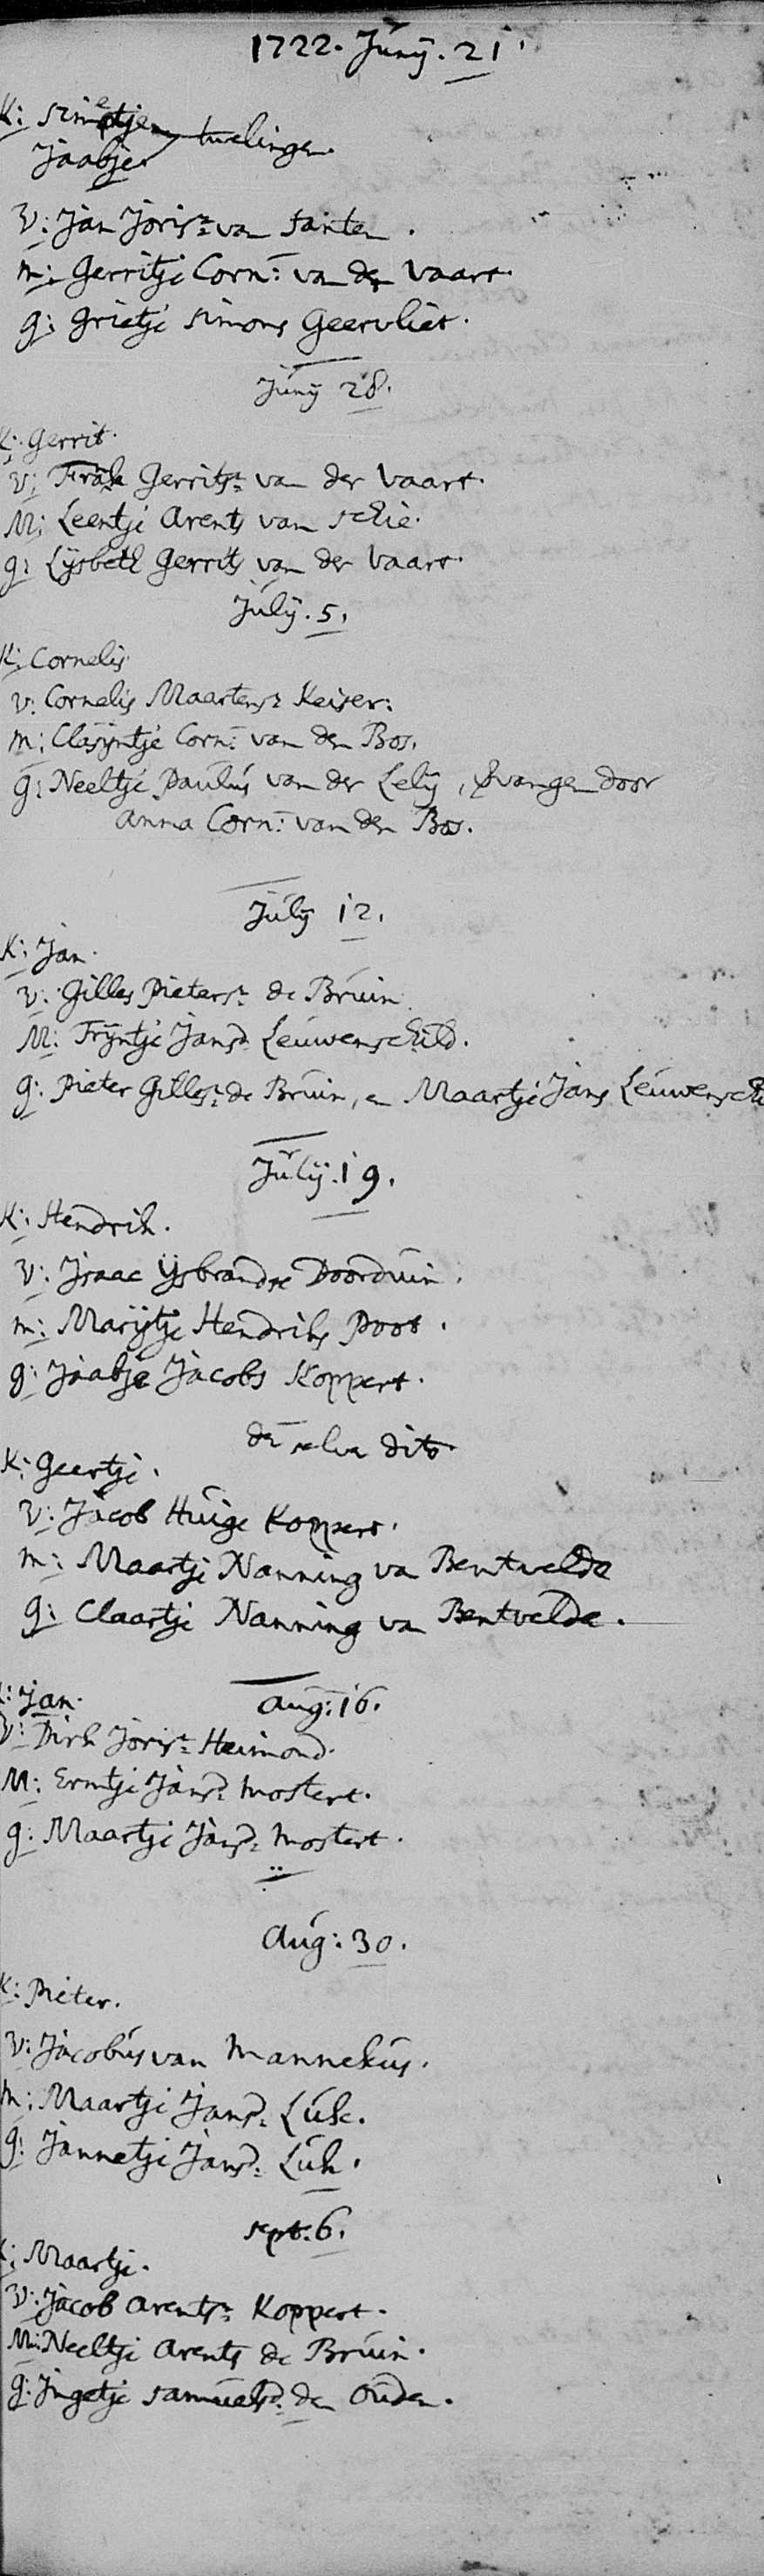 1722. Junÿ. 21.
K: Simetje
Jaabje twelingen.
V: Jan Joris: van Santen.
m: Gerritje Corn: van der Vaart.
g: Grietje Simons Geervliet.
Junÿ 28.
K: Gerrit.
V: Frak Gerrits: van der Vaart.
M: Leentje Arents van Schie.
g: Lÿsbeth Gerrits van der Vaart.
Julÿ. 5.
K: Cornelis
V: Cornelis Maartens: Keiser:
m: Clasÿntje Corn: van den Bos.
g: Neeltje Paulus van der Lelÿ, door
Anna Corn: van den Bos.
Julÿ 12.
K: Jan.
V: Gilles Pieters: de Bruin
M: Trÿntje Jansd: Leuwenschild.
g: Pieter Gilles: de Bruin, en Maartje Jans Leuwenschi
Julÿ. 19.
K: Hendrik.
V: Isaac ÿsbrandse Doorduin.
m: Marÿtje Hendriks Poot.
g: Jaabje Jacobs Koppert.
de selve dito.
K: Geertje.
V: Jacob Huige Koppert.
m: Maartje Nanning va Bentvelde
g: Claartje Nanning va Bentvelde.
Aug: 16.
K: Jan.
V: Dirk Joris: Heimond.
M: Ermtje Jansd: Mostert.
g: Maartje Jansd: Mostert.
Aug: 30.
K: Pieter.
V: Jacobus van Mannekus.
m: Maartje Jansd: Luk.
g: Jannetje Jansd: Luk.
Sept: 6.
K: Maartje.
V: Jacob Arents: Koppert.
M: Neeltje Arents de Bruin.
g: Ingetje Samuelsd: den Ouden.